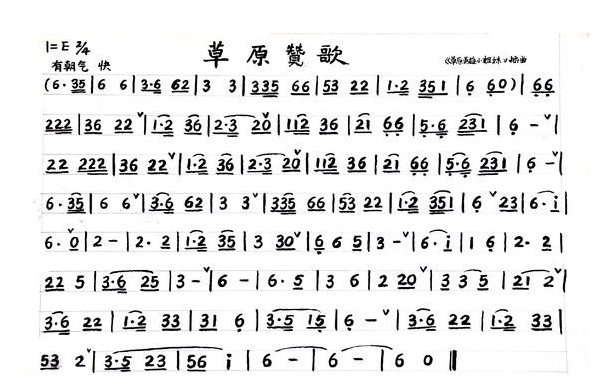 1=E 2/4
草原赞歌
有朝气 快
《草原英雄小姐妹》插曲
(6· 35 | 6 6 | 3·6 62 | 3 3 | 335 66 | 53 22 | 1·2 351 | 6 60) | 66
222 | 36 22ˇ | 1·2 36 | 2·3 20ˇ | 112 36 | 21 66 | 5·6 231 | 6 -ˇ |
22 222 | 36 22ˇ | 1·2 36 | 2·3 20ˇ | 112 36 | 21 66 | 5·6 231 | 6 -ˇ |
6· 35 | 6 6ˇ | 3·6 62 | 3 3ˇ | 335 66 | 53 22 | 1·2 351 | 6ˇ 23 | 6· i |
6· 0ˇ | 2 - | 2· 2 | 1·2 35 | 3 30ˇ | 6 6 5 | 3 -ˇ | 6· i | 1 6 | 2· 2 |
22 5 | 3·6 25 | 3 -ˇ | 6 - | 6· 5 | 3 6 | 2 20ˇ | 3 3 5 | 21 2ˇ |
3·6 22 | 1·2 33 | 31 6 | 3·5 15 | 6 -ˇ | 3·6 22 | 1·2 33 |
53 2ˇ | 3·5 23 | 56 i | 6 - | 6 - | 6 0 ‖